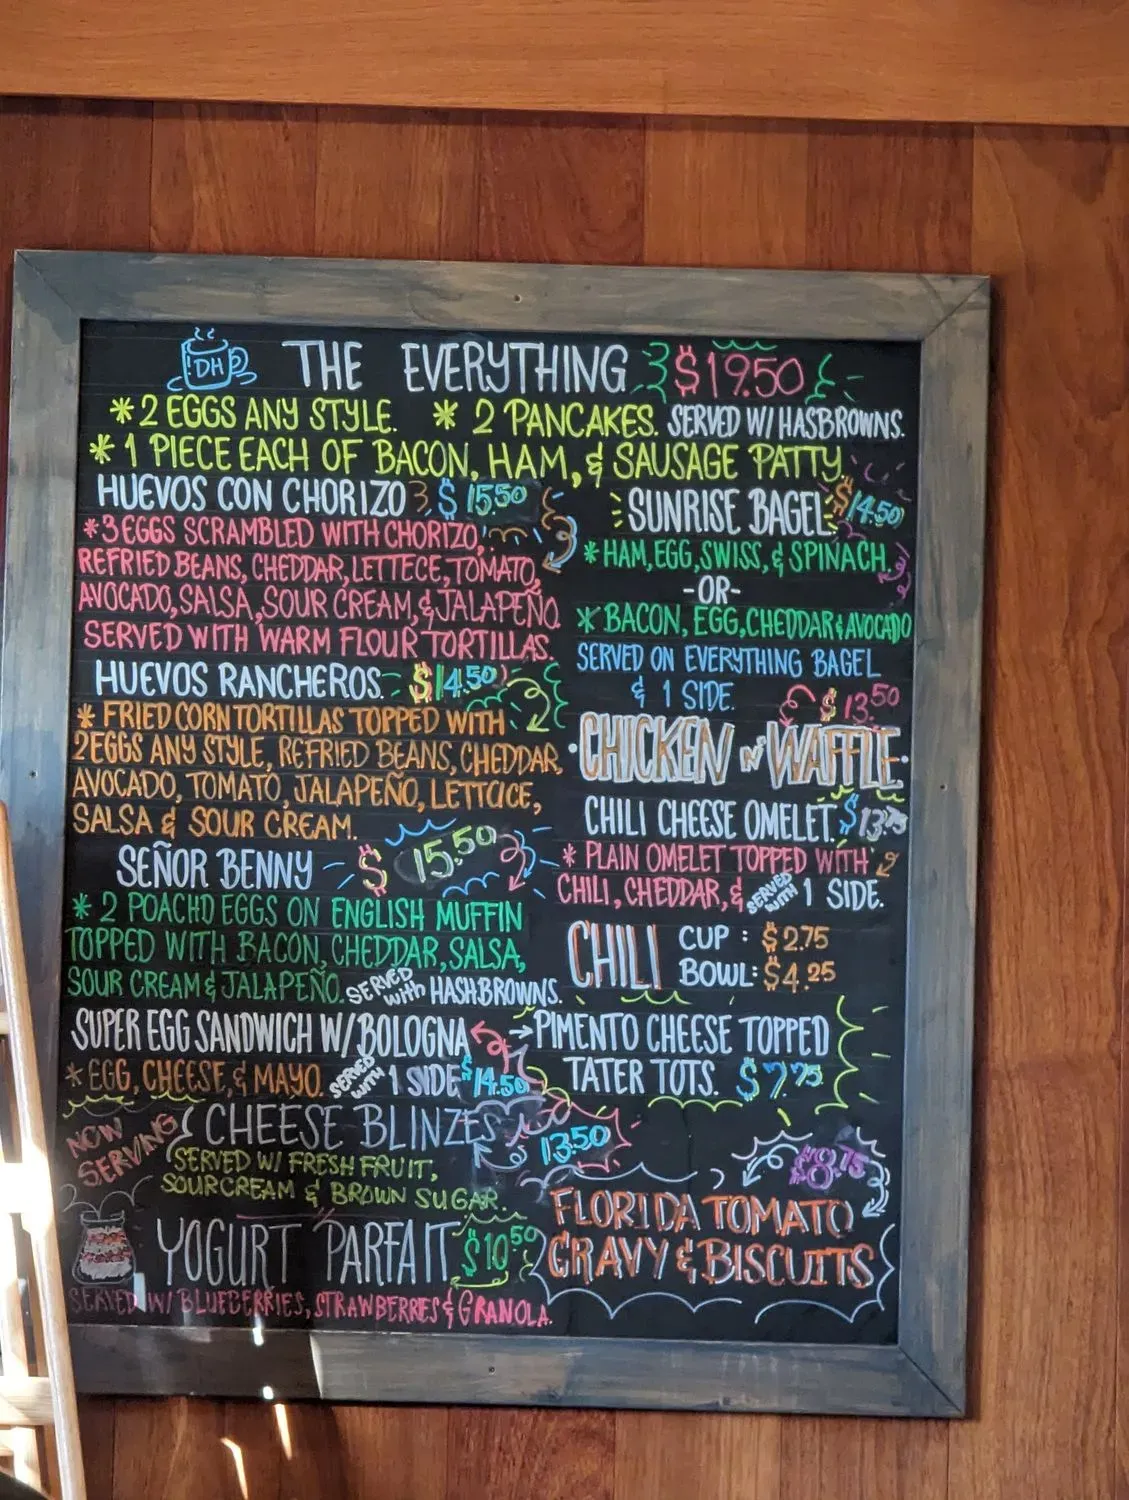 DH
THE EVERYTHING $19.50
* 2 EGGS ANY STYLE. * 2 PANCAKES. SERVED W/ HASBROWNS.
* 1 PIECE EACH OF BACON, HAM, & SAUSAGE PATTY
HUEVOS CON CHORIZO $15.50
* 3 EGGS SCRAMBLED WITH CHORIZO,
REFRIED BEANS, CHEDDAR, LETTECE, TOMATO,
AVOCADO, SALSA, SOUR CREAM, & JALAPEÑO.
SERVED WITH WARM FLOUR TORTILLAS.
HUEVOS RANCHEROS. $14.50
* FRIED CORN TORTILLAS TOPPED WITH
2 EGGS ANY STYLE, REFRIED BEANS, CHEDDAR,
AVOCADO, TOMATO, JALAPEÑO, LETTCICE,
SALSA & SOUR CREAM.
SEÑOR BENNY $15.50
* 2 POACHD EGGS ON ENGLISH MUFFIN
TOPPED WITH BACON, CHEDDAR, SALSA,
SOUR CREAM & JALAPEÑO. SERVED with HASHBROWNS.
SUPER EGG SANDWICH W/ BOLOGNA
* EGG, CHEESE, & MAYO. SERVED WITH 1 SIDE $14.50
NOW SERVING
CHEESE BLINZES 13.50
SERVED W/ FRESH FRUIT,
SOUR CREAM & BROWN SUGAR.
YOGURT PARFAIT $10.50
SERVED W/ BLUEBERRIES, STRAWBERRIES & GRANOLA.
SUNRISE BAGEL $14.50
* HAM, EGG, SWISS, & SPINACH.
-OR-
* BACON, EGG, CHEDDAR & AVOCADO
SERVED ON EVERYTHING BAGEL
& 1 SIDE.
$13.50
CHICKEN N' WAFFLE
CHILI CHEESE OMELET. $13.75
* PLAIN OMELET TOPPED WITH
CHILI, CHEDDAR, & SERVED WITH 1 SIDE.
CHILI CUP: $2.75
BOWL: $4.25
PIMENTO CHEESE TOPPED
TATER TOTS. $7.75
$8.75
FLORIDA TOMATO
GRAVY & BISCUITS